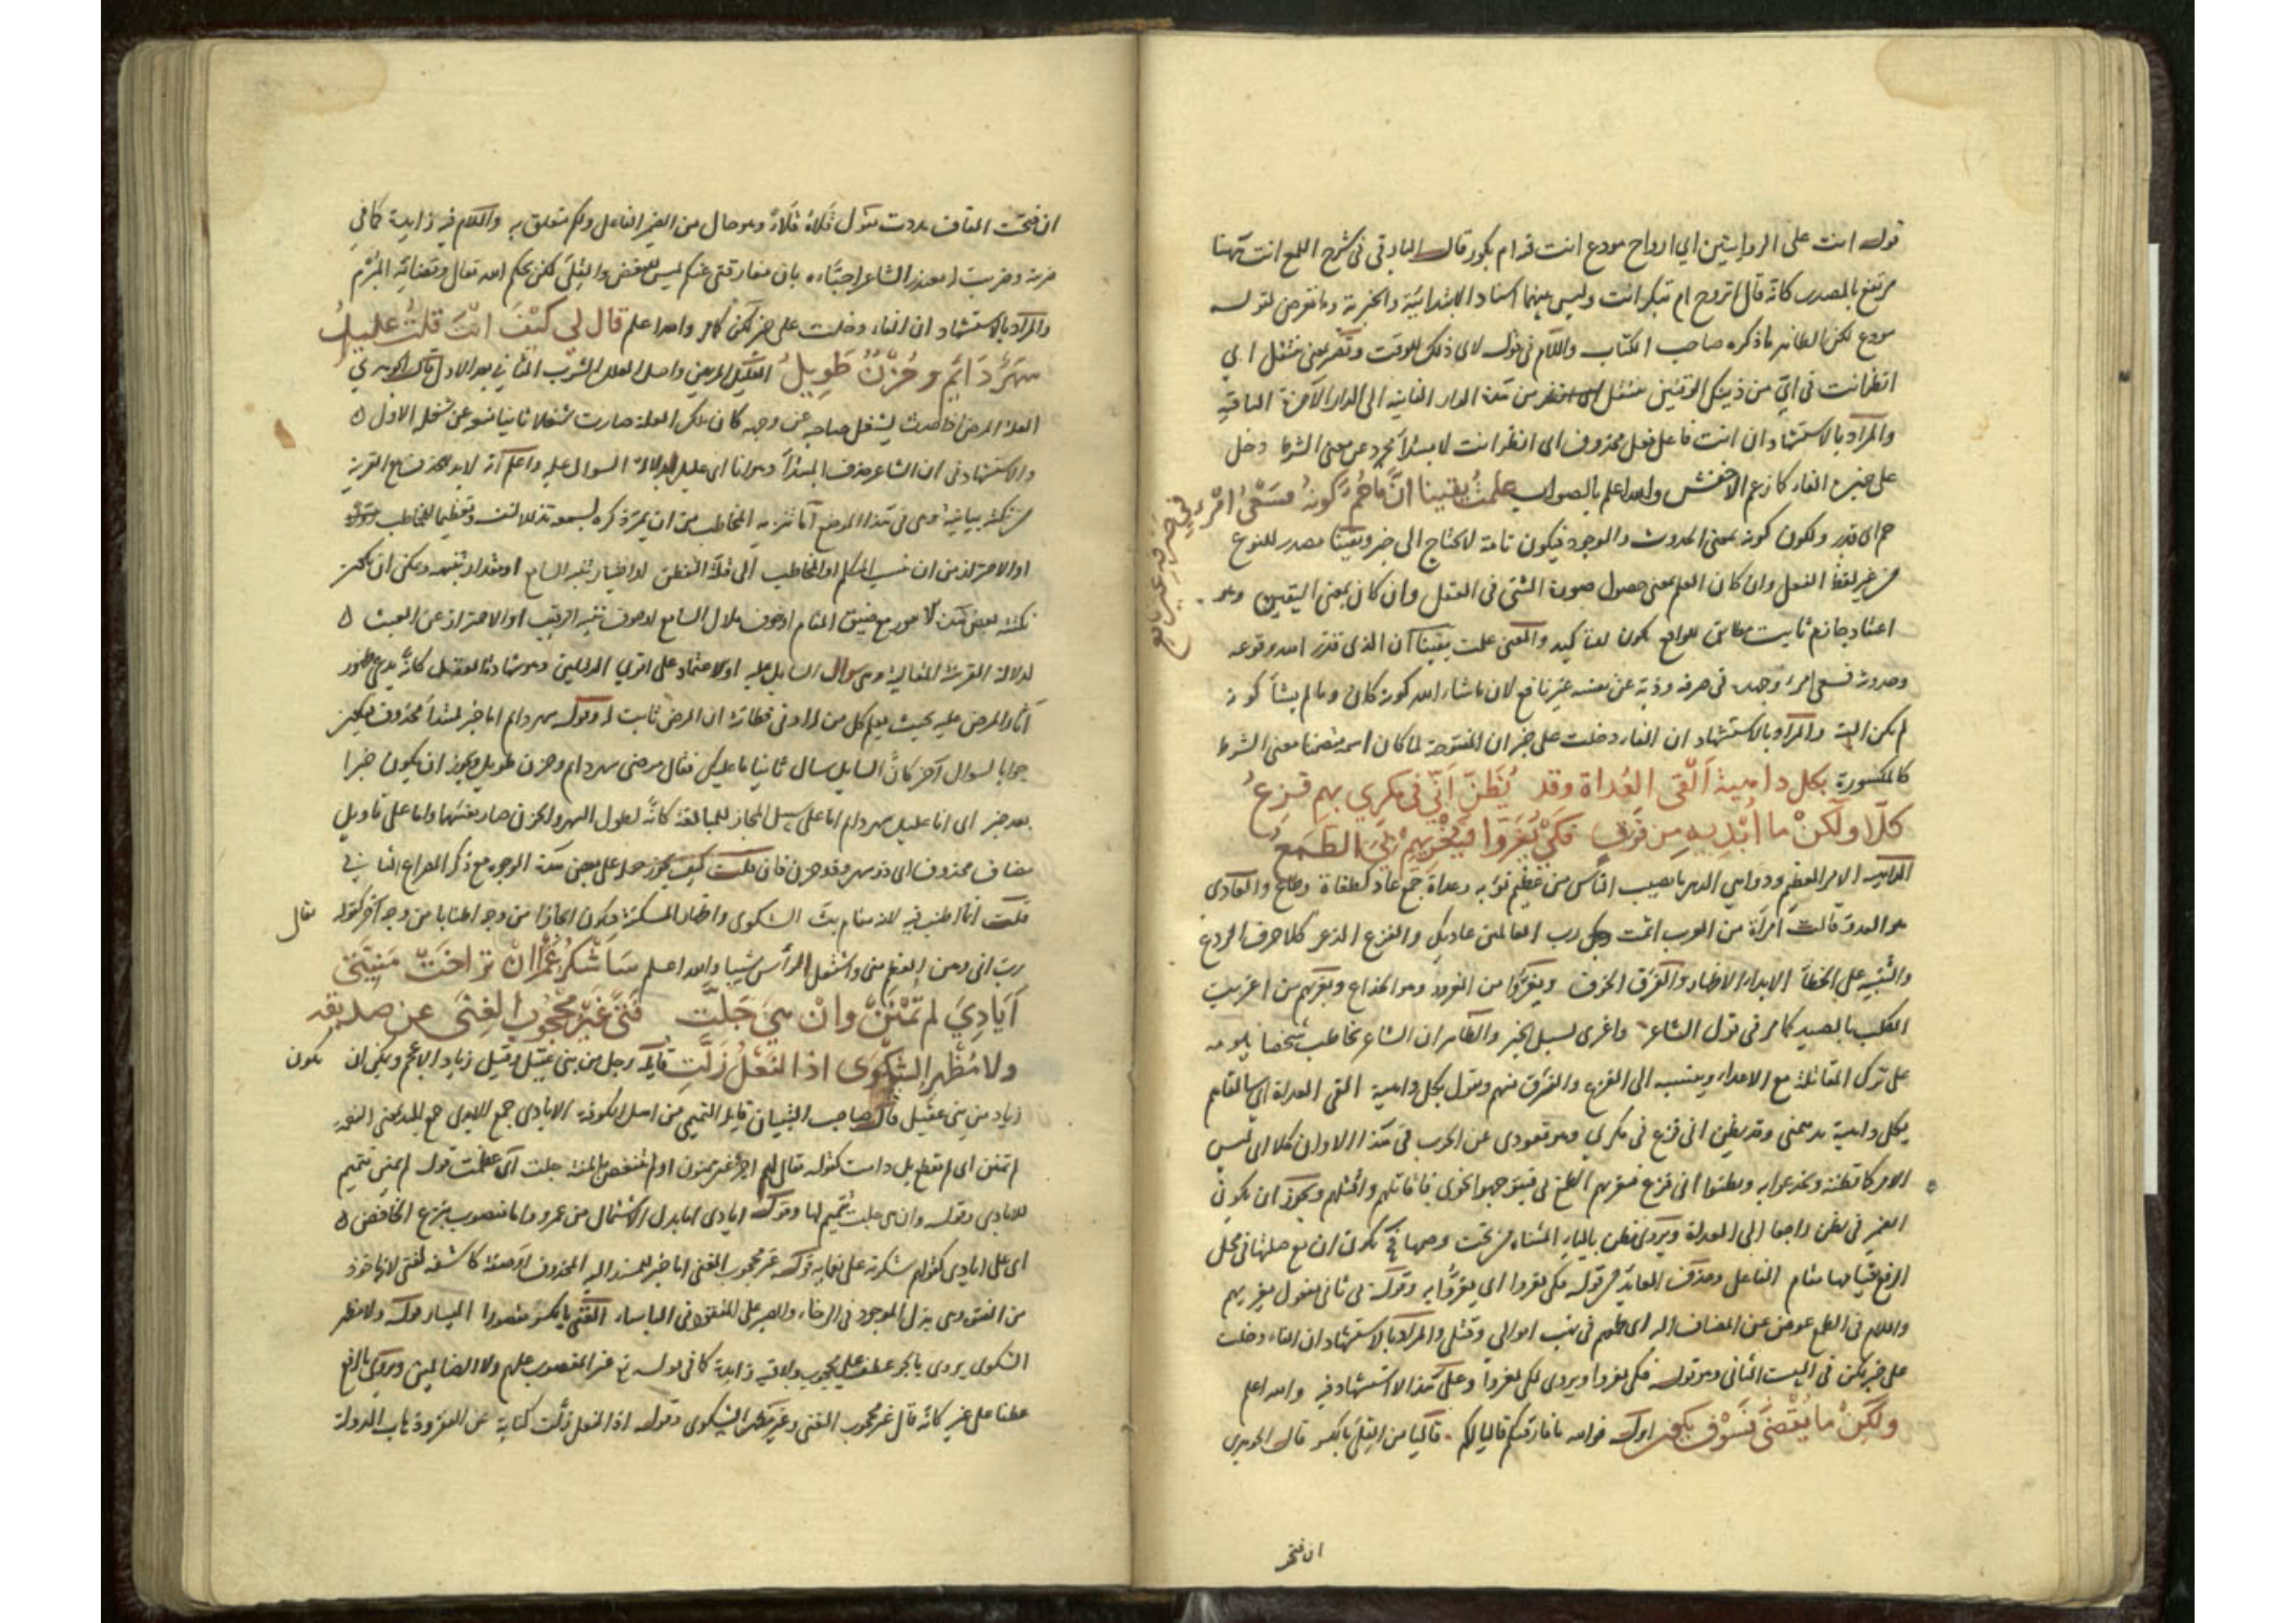 قوله انت على الروايتين اي ارواح مودع انت فدام بكور قال في شرح اللمع انت ههنا
مرتفع بالمصدر كانه قال اتروح ام تبكر انت وليس بينهما اسناد الابتدائية والخبرية وما تعرض لقوله
مودع لكن الظاهر ما ذكره صاحب الكتاب واللام في قوله لاي ذلك للوقت وتصير بمعنى تنتقل اي
انظر انت في اي من ذينك الوقتين تنتقل من هذه الدار الفانية الى الدار الآخرة الباقية
والمراد بالاستشهاد ان انت فاعل فعل محذوف اي انظر انت لا مبتدأ مجرد عن معنى الشرط دخل
على خبره الفاء كما زعم الاخفش والله اعلم بالصواب علمت يقينا ان ما حم كونه فسعي امرء في
صرفه
حم اي قدر ويكون كونه بمعنى الحدوث والوجود فيكون تامة لا يحتاج الى خبر ويقينا مصدر للنوع
من غير لفظ الفعل وان كان العلم بمعنى حصول صورة الشئ في العقل وان كان بمعنى اليقين وهو
اعتقاد جازم ثابت مطابق للواقع يكون للتاكيد والمعنى علمت يقينا ان الذي قدر الله وقوعه
وحدوثه فسعي امرء وجهده في صرفه وذبه عن نفسه غير نافع لان ما شاء الله كونه كان وما لم يشأ كونه
لم يكن البتة والمراد بالاستشهاد ان الفاء دخلت على خبر ان المفتوحة لما كان اسمه متضمنا معنى الشرط
كالمكسورة بكل داهية القى العداة وقد يظن اني في مكري بهم فزع
كلا ولكن ما ابديه من فرق فكي يغروا فيغريهم بي الطمع
الداهية الامر العظيم ودواهي الدهر ما يصيب الناس من عظيم نوبه وعداة جمع عاد كطغاة وطاغ والعادي
هو العدو قالت امرأة من العرب اشمت رب العالمين عاديك والفزع الذعر كلا حرف الردع
والتنبيه على الخطأ الابداء الاظهار والفرق الخوف ويغروا من الغرور وهو الخداع ويغريهم من اغريت
الكلب بالصيد كما مر في قول الشاعر واغرى لسبل الخير والظاهر ان الشاعر يخاطب شخصا يلومه
على ترك المقاتلة مع الاعداء وينسبه الى الفزع والفرق منهم ويقول بكل داهية القى العداة اي القاهم
بكل داهية تدهمني وقد يظن اني فزع في مكري وهو قعودي عن الحرب في هذا الاوان كلا اي ليس
الامر كما تظنه ويظنوا اني فزع فيغريهم الطمع بي فاقاتلهم واقتلهم ويجوز ان يكون
الضمير في يظن راجعا الى العداة ويروى يظن بالياء المثناة من تحت وضمها فح يكون ان مع صلتها في محل
الرفع لقيامها مقام الفاعل وحذف العائد من قوله فكي يغروا اي يغروا به وقوله بي ثاني مفعول يغريهم
واللام في الطمع عوض عن المضاف اليه اي طمعهم في نهب اموالي وقتلي والمراد بالاستشهاد ان الفاء دخلت
على خبر لكن في البيت الثاني وهو قوله فكي يغروا ويروى لكي يغروا وعلى هذا لا استشهاد فيه والله اعلم
ولكن ما يقضى فسوف يكون اوله فوالله ما فارقتكم قاليا لكم قاليا من القلى بالكسر قال الجوهري
ان فتحت
ان فتحت القاف مددت تقول قلاه قلاء وهو حال من الضمير الفاعل ولكم متعلق به واللام فيه زايدة كما في
ضربه وضربت له يعتذر الشاعر احباءه بان مفارقتي عنكم ليس للبغض والقلى لكن بحكم الله تعالى وقضائه المبرم
والمراد بالاستشهاد ان الفاء دخلت على خبر لكن كما مر والله اعلم قال لي كيف انت قلت عليل
سهر دائم وحزن طويل العليل المريض واصل العلل الشرب الثاني بعد الاول قال الجوهري
العلة المرض وحدث يشغل صاحبه عن وجهه كان تلك العلة صارت شغلا ثانيا منعه عن شغله الاول
والاستشهاد في ان الشاعر حذف المبتدأ وهو انا اي انا عليل لدلالة السوال عليه واعلم انه لابد للحذف مع القرينة
من نكتة بيانية وهي في هذا الموضع اما تنزيه المخاطب من ان يجري ذكره لسمعه تذللا لنفسه وتعظيما للمخاطب
او الاحتراز من ان ينسب المتكلم او المخاطب الى قلة التفطن او اختبار تنبه السامع او مقدار تنبهه ويمكن ان يكون
لدلالة القرينة المقالية وهي سوال السايل عليه او للاعتماد على اقوى الدليلين وهو شهادة العقل كانه يدعي ظهور
آثار المرض عليه بحيث يعلم كل من له ادنى فطانة ان المرض ثابت له وقوله سهر دائم اما خبر لمبتدأ محذوف فيكون
جوابا لسوال آخر كان السايل سال ثانيا ما عليك فقال مرضي سهر دائم وحزن طويل ويجوز ان يكون خبرا
بعد خبر اي انا عليل سهر دائم اما على سبيل المجاز للمبالغة كانه لطول السهر والحزن صار نفسهما واما على تاويل
مضاف محذوف اي ذو سهر وذو حزن فان قلت كيف يجوز حمله على بعض هذه الوجوه مع ذكر المصراع الثاني
قلت انما اطنب فيه لانه مقام بث الشكوى واظهار المسكنة فيكون ايجازا من وجه اطنابا من وجه آخر كقوله تعالى
رب اني وهن العظم مني واشتعل الرأس شيبا والله اعلم سأشكر عمرا ان تراخت منيتي
أيادي لم تمنن وان هي جلت فتى غير محجوب الغنى عن صديقه
ولا مظهر الشكوى اذا النعل زلت قايله رجل من بني عقيل وقيل زياد الاعجم ويمكن ان يكون
زياد من بني عقيل قال صاحب التبيان قايله التميمي من اهل الكوفة الايادي جمع الايدي جمع اليد بمعنى النعمة
لم تمنن اي لم تقطع بل دامت كقوله تعالى لهم اجر غير ممنون او لم تنغص بالمنة جلت اي عظمت قوله لم تمنن تتميم
للايادي وقوله وان هي جلت تتميم لها وقوله ايادي اما بدل الاشتمال من عمرو واما منصوب بنزع الخافض
اي على ايادي كقولهم شكرته على نعمايه قوله غير محجوب الغنى اما خبر للمسند اليه المحذوف او صفة كاشفة لفتى لانها خوذ
من الفتوة وهي بذل الموجود في الرخاء والصبر على المفقود في الباساء الغنى بالكسر مقصورا اليسار قوله ولا مظهر
الشكوى يروى بالجر عطف على محجوب ولا فيه زايدة كما في قوله تع غير المغضوب عليهم ولا الضالين ويروى بالرفع
عطفا على غير كانه قال غير محجوب الغنى وغير مظهر الشكوى وقوله اذا النعل زلت كناية عن الفقر وذهاب الدولة